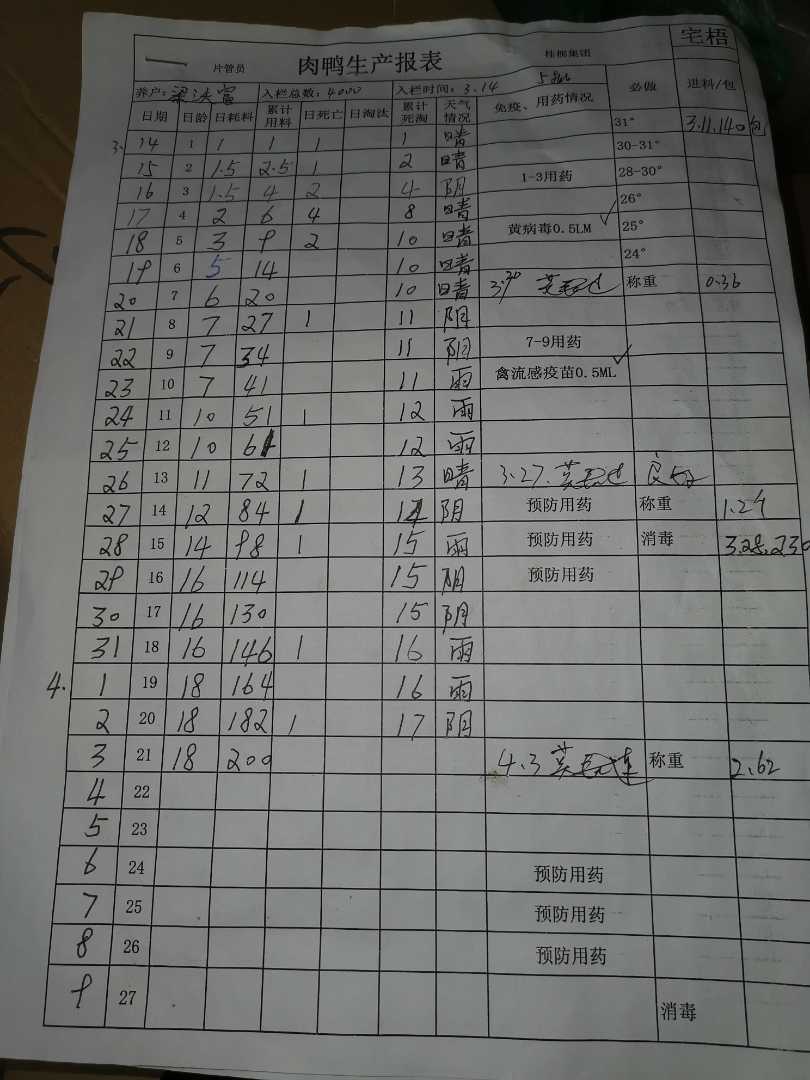 宅梧
一 片管员 肉鸭生产报表 桂柳集团
养户: 入栏总数:4000 入栏时间:3.14
日期 日龄 日耗料 累计用料 日死亡 日淘汰 累计死淘 天气情况 免疫、用药情况 必做 进料/包
3. 14 1 1 1 1 1 晴 31° 3.11.140包
15 2 1.5 2.5 1 2 晴 30-31°
16 3 1.5 4 2 4 阴 1-3用药 28-30°
17 4 2 6 4 8 晴 26°
18 5 3 9 2 10 晴 黄病毒0.5LM ✓ 25°
19 6 5 14 10 晴 24°
20 7 6 20 10 晴 称重 0.36
21 8 7 27 1 11 阴
22 9 7 34 11 阴 7-9用药
23 10 7 41 11 雨 禽流感疫苗0.5ML ✓
24 11 10 51 1 12 雨
25 12 10 61 12 雨
26 13 11 72 1 13 晴 3.27. 良好
27 14 12 84 1 14 阴 预防用药 称重
28 15 14 98 1 15 雨 预防用药 消毒 3.28.230
29 16 16 114 15 阴 预防用药
30 17 16 130 15 阴
31 18 16 146 1 16 雨
4. 1 19 18 164 16 雨
2 20 18 182 1 17 阴
3 21 18 200 4.3 称重 2.62
4 22
5 23
6 24 预防用药
7 25 预防用药
8 26 预防用药
9 27 消毒